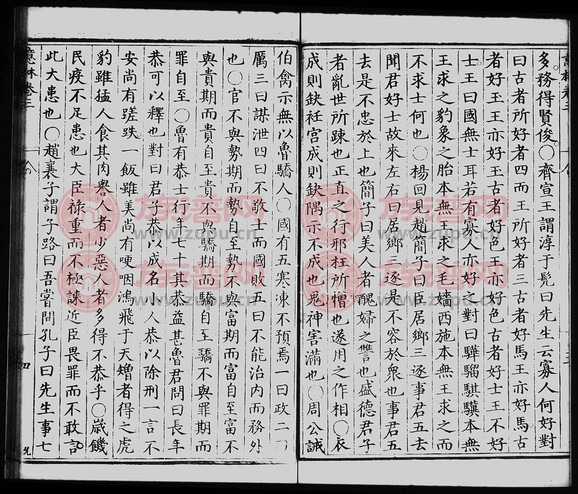 多務得賢俊〇齊宣王謂淳于髡曰先生云寡人何好對
曰古者所好者四而王所好者三古者好馬王亦好馬古
者好王王亦好王古者好色王亦好色古者好士王不好
士王曰國無士耳若有寡人亦好之對曰驊騮騏驥本無
王求之豹象之胎本無王求之毛嬙西施本無王求之而
不求士何也〇楊回見趙簡子曰臣居鄉三逐事君五去
聞君好士故來左右曰居鄉三逐是不容於衆也事君五
去是不忠於上也簡子曰美人者醜婦之讐也盛德君子
者亂世所踈也正直之行邪枉所憎也遂用之作相〇衣
成則缺袵宫成則缺隅示不成也鬼神害滿也〇周公誡
伯禽示無以魯驕人〇國有五寒凍不預焉一曰政二曰
厲三曰謀泄四曰不敬士而國敗五曰不能治內而務外
也〇官不與勢期而勢自至勢不與富期而富自至富不
與貴期而貴自至貴不與驕期而驕自至驕不與罪期而
罪自至〇魯有恭士行年七十其恭益甚魯君問曰長年
恭可以釋也對曰君子恭以成名小人恭以除刑一言不
安尚有蹉跌一飯雖美尚有哽咽鴻飛于天矰者得之虎
豹雖猛人食其肉譽人者少惡人者多得不恭乎〇歲饑
民疫不足患也大臣祿重而不極諫近臣畏罪而不敢
此大患也〇趙襄子謂子路曰吾嘗問孔子曰先生事七
意林卷三
四
www.zupu.cn
www.zupu.cn
www.zupu.cn
www.zupu.cn